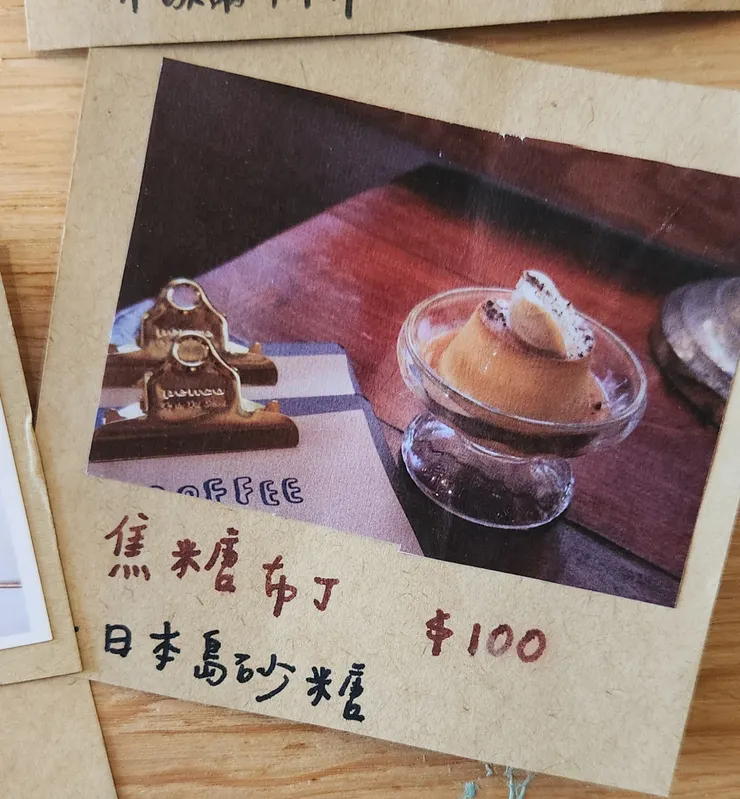 COFFEE
焦糖布丁 $100
日本島砂糖